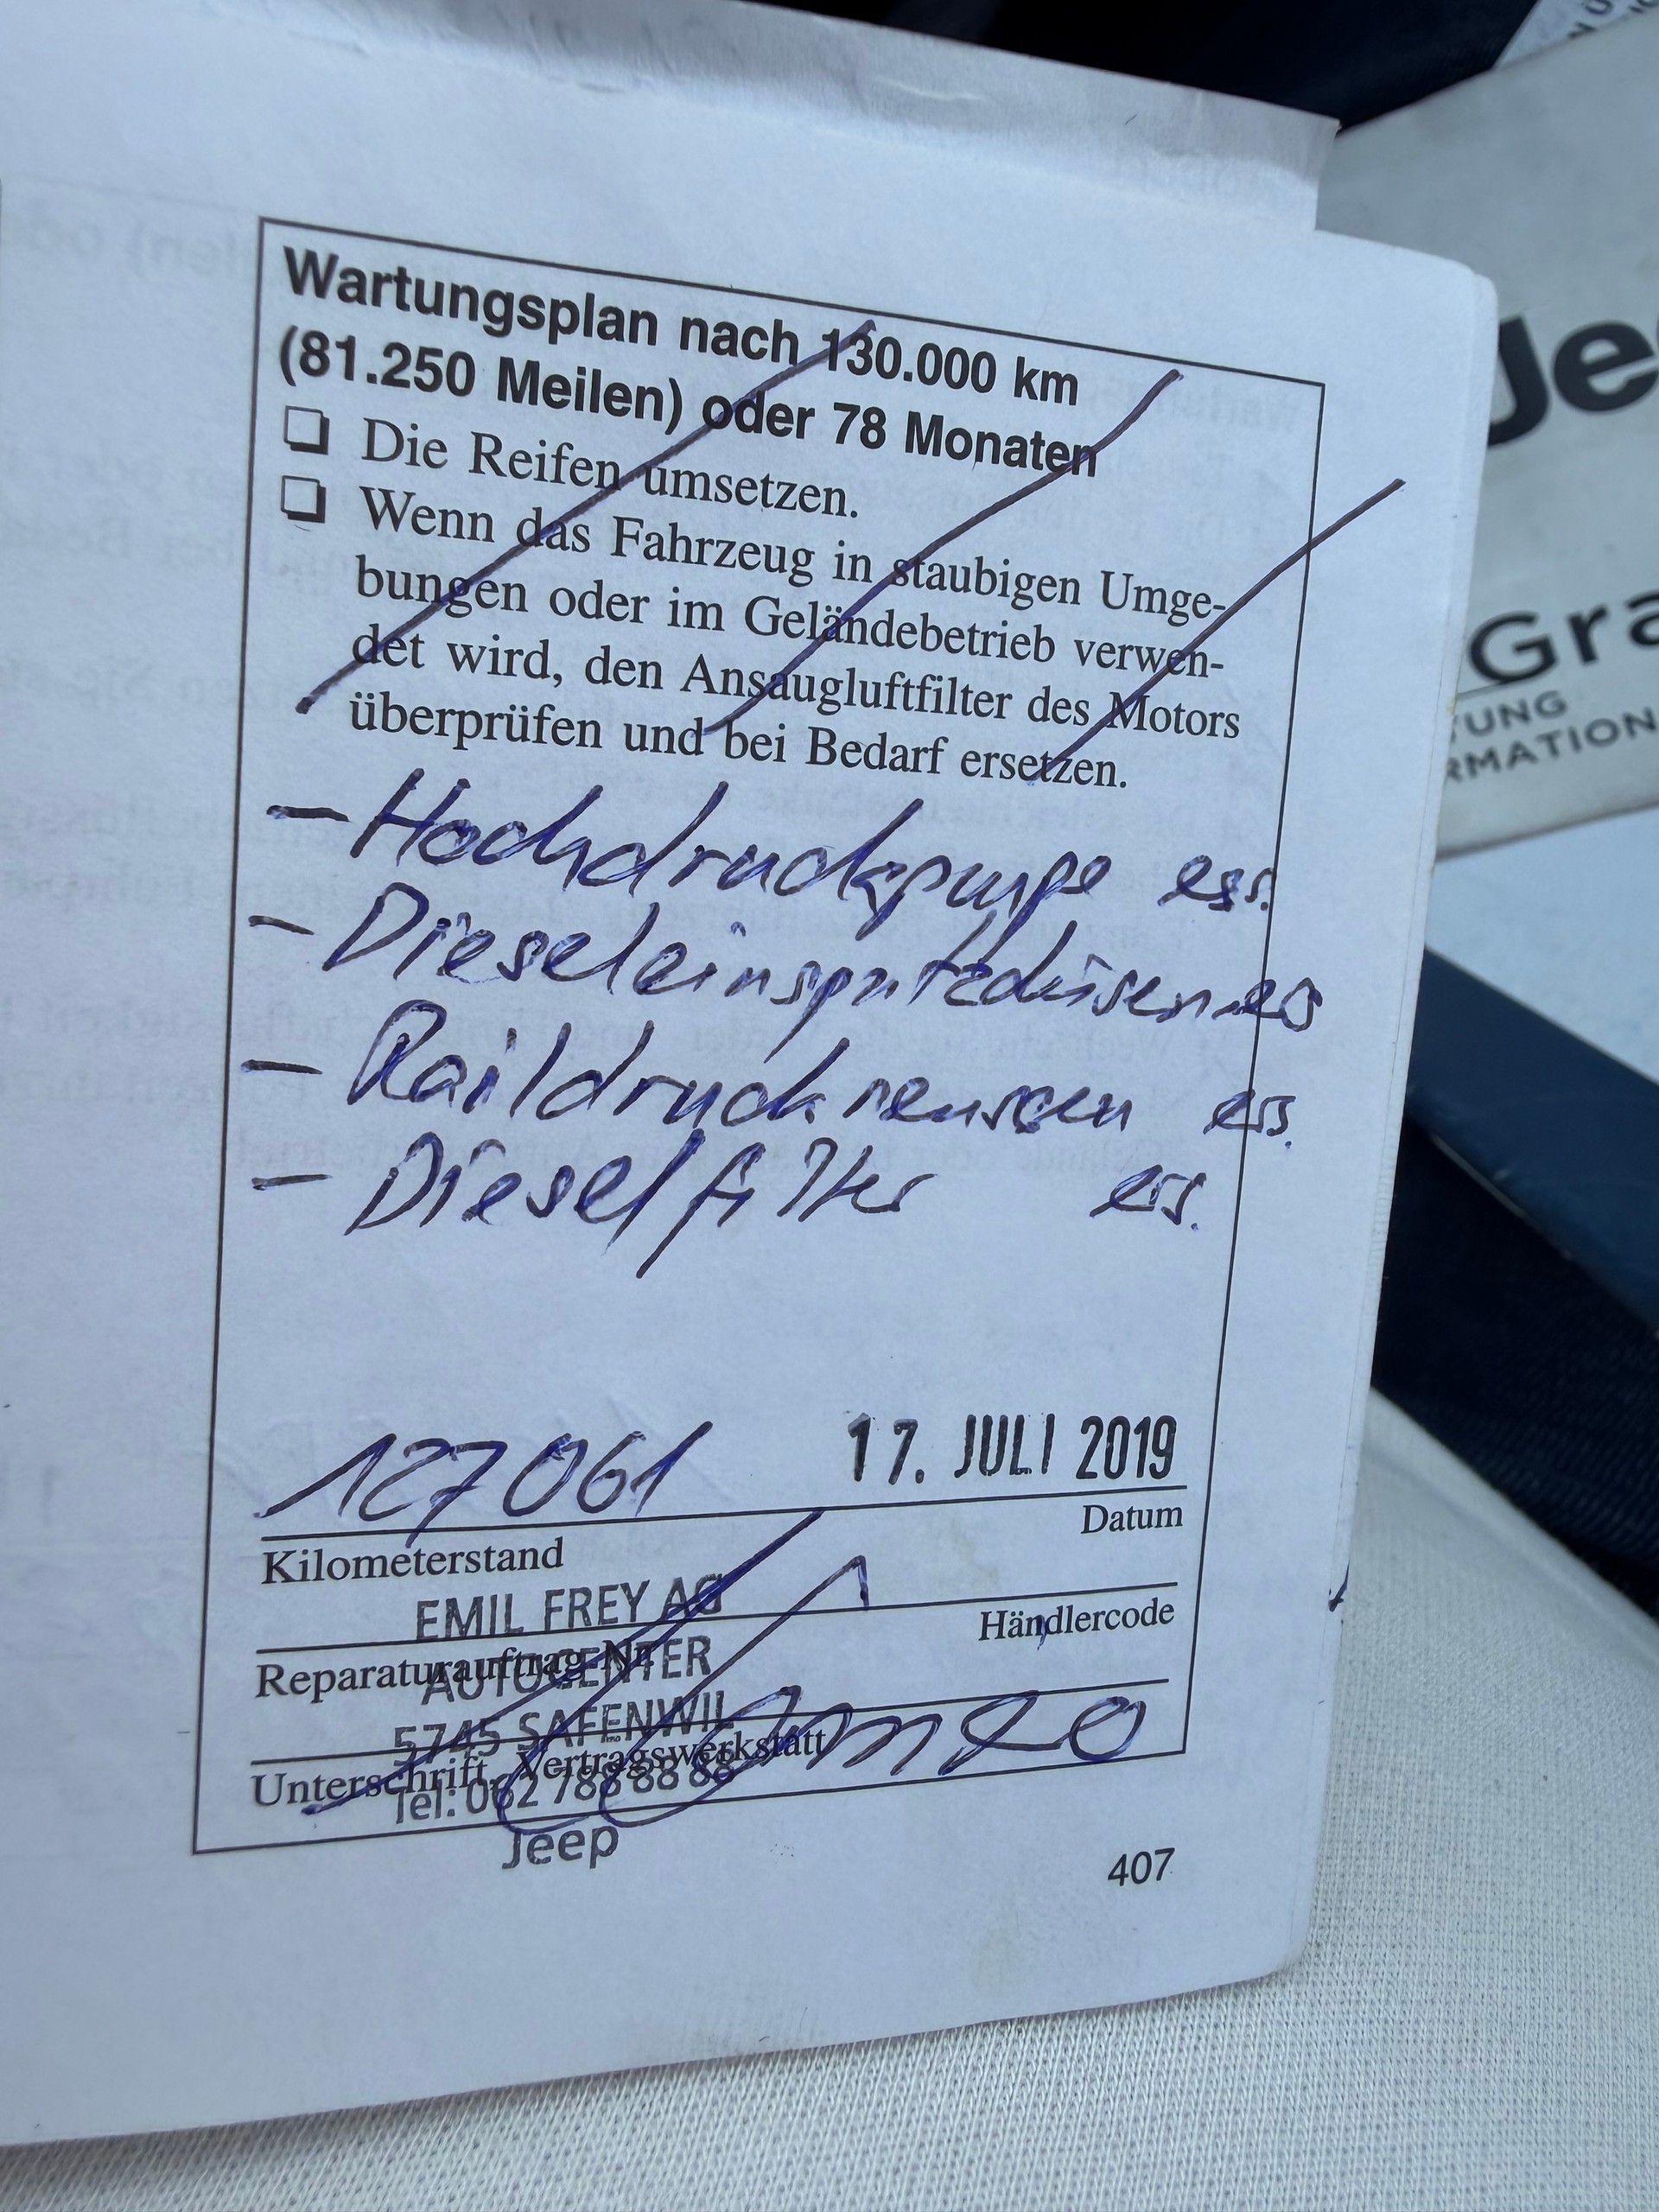 Wartungsplan nach 130.000 km
(81.250 Meilen) oder 78 Monaten
Die Reifen umsetzen.
Wenn das Fahrzeug in staubigen Umge-
bungen oder im Geländebetrieb verwen-
det wird, den Ansaugluftfilter des Motors
überprüfen und bei Bedarf ersetzen.
- Hochdruckpumpe ers.
- Dieseleinspritzdüsen ers
- Raildrucksensoren ers.
- Dieselfilter ers.
127061 17. JULI 2019
Kilometerstand Datum
EMIL FREY AG
Händlercode
Reparaturauftrag-Nr.
AUTOCENTER
5745 SAFENWIL
Unterschrift, Vertragswerkstatt
Tel: 062 788 88 88
Jeep
407
Je
Gra
TUNG
RMATION